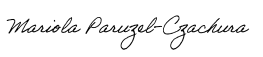 Mariola Paruzel-Czachura